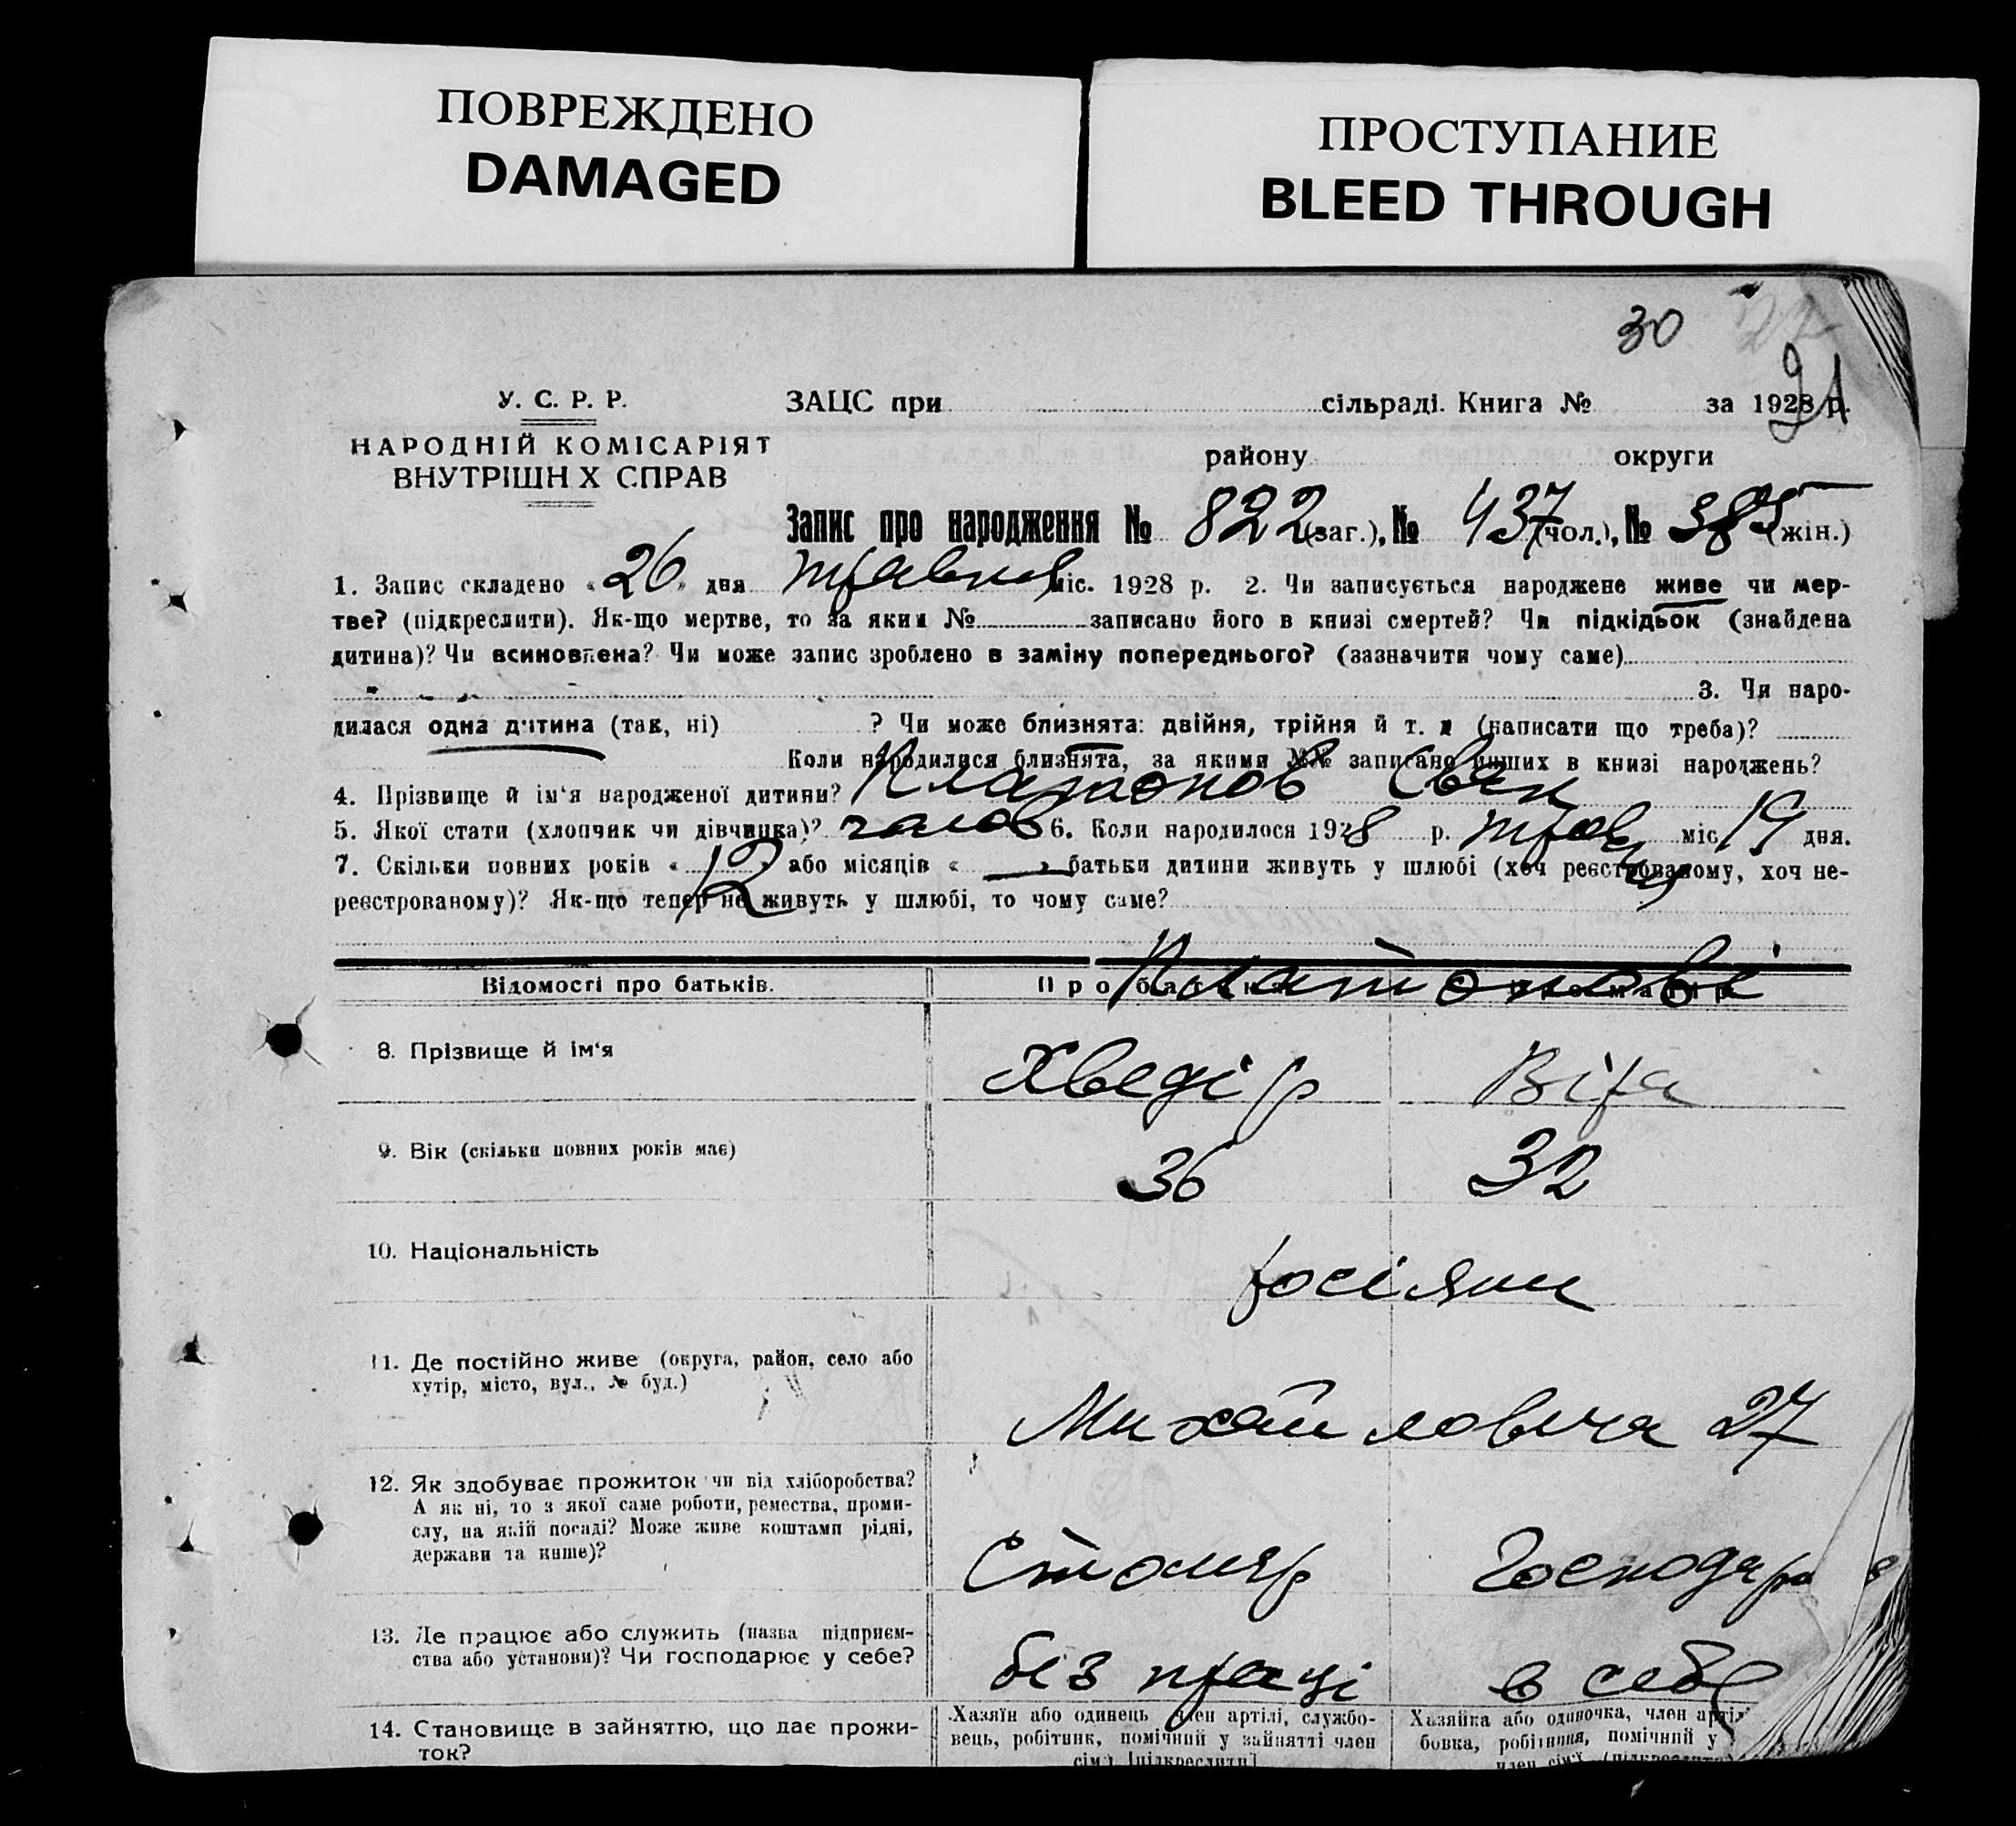 ПОВРЕЖДЕНО
DAMAGED
ПРОСТУПАНИЕ
BLEED THROUGH
30
21
У. С. Р. Р.
НАРОДНІЙ КОМІСАРІЯТ
ВНУТРІШН Х СПРАВ
ЗАЦС при сільраді. Книга № за 1928 р.
району округи
Запис про народження № 822 (заг.), № 437 (чол.), № 385 (жін.)
1. Запис складено «26» дня травня міс. 1928 р. 2. Чи записується народжене живе чи мер-
тве? (підкреслити). Як-що мертве, то за яким № записано його в книзі смертей? Чи підкідьок (знайдена
дитина)? Чи всиновлена? Чи може запис зроблено в заміну попереднього? (зазначити чому саме)
3. Чи наро-
дилася одна дитина (так, ні) ? Чи може близнята: двійня, трійня й т. д (написати що треба)?
Коли народилися близнята, за якими №№ записано инших в книзі народжень?
4. Прізвище й ім'я народженої дитини? Платонов
5. Якої стати (хлопчик чи дівчинка)? чолов 6. Коли народилося 1928 р. травня міс 19 дня.
7. Скільки повних років «12» або місяців « — » батьки дитини живуть у шлюбі (хоч реєстрованому, хоч не-
реєстрованому)? Як-що тепер не живуть у шлюбі, то чому саме?
Відомості про батьків. Про батька Про матір
Платонові
8. Прізвище й ім'я Хведір Віра
9. Вік (скільки повних років має) 36 32
10. Національність росіяни
11. Де постійно живе (округа, район, село або
хутір, місто, вул., № буд.)
Михайловича 27
12. Як здобуває прожиток чи від хліборобства?
А як ні, то з якої саме роботи, ремества, проми-
слу, на якій посаді? Може живе коштами рідні,
держави та инше)?
Столяр Господарка
13. Де працює або служить (назва підприєм-
ства або установи)? Чи господарює у себе?
без праці в себе
14. Становище в зайняттю, що дає прожи-
ток?
Хазяїн або одинець член артілі, службо-
вець, робітник, помічний у зайнятті член
сім'ї [підкреслити]
Хазяйка або одиночка, член артілі
бовка, робітниця, помічний у
член сім'ї (підкреслити)